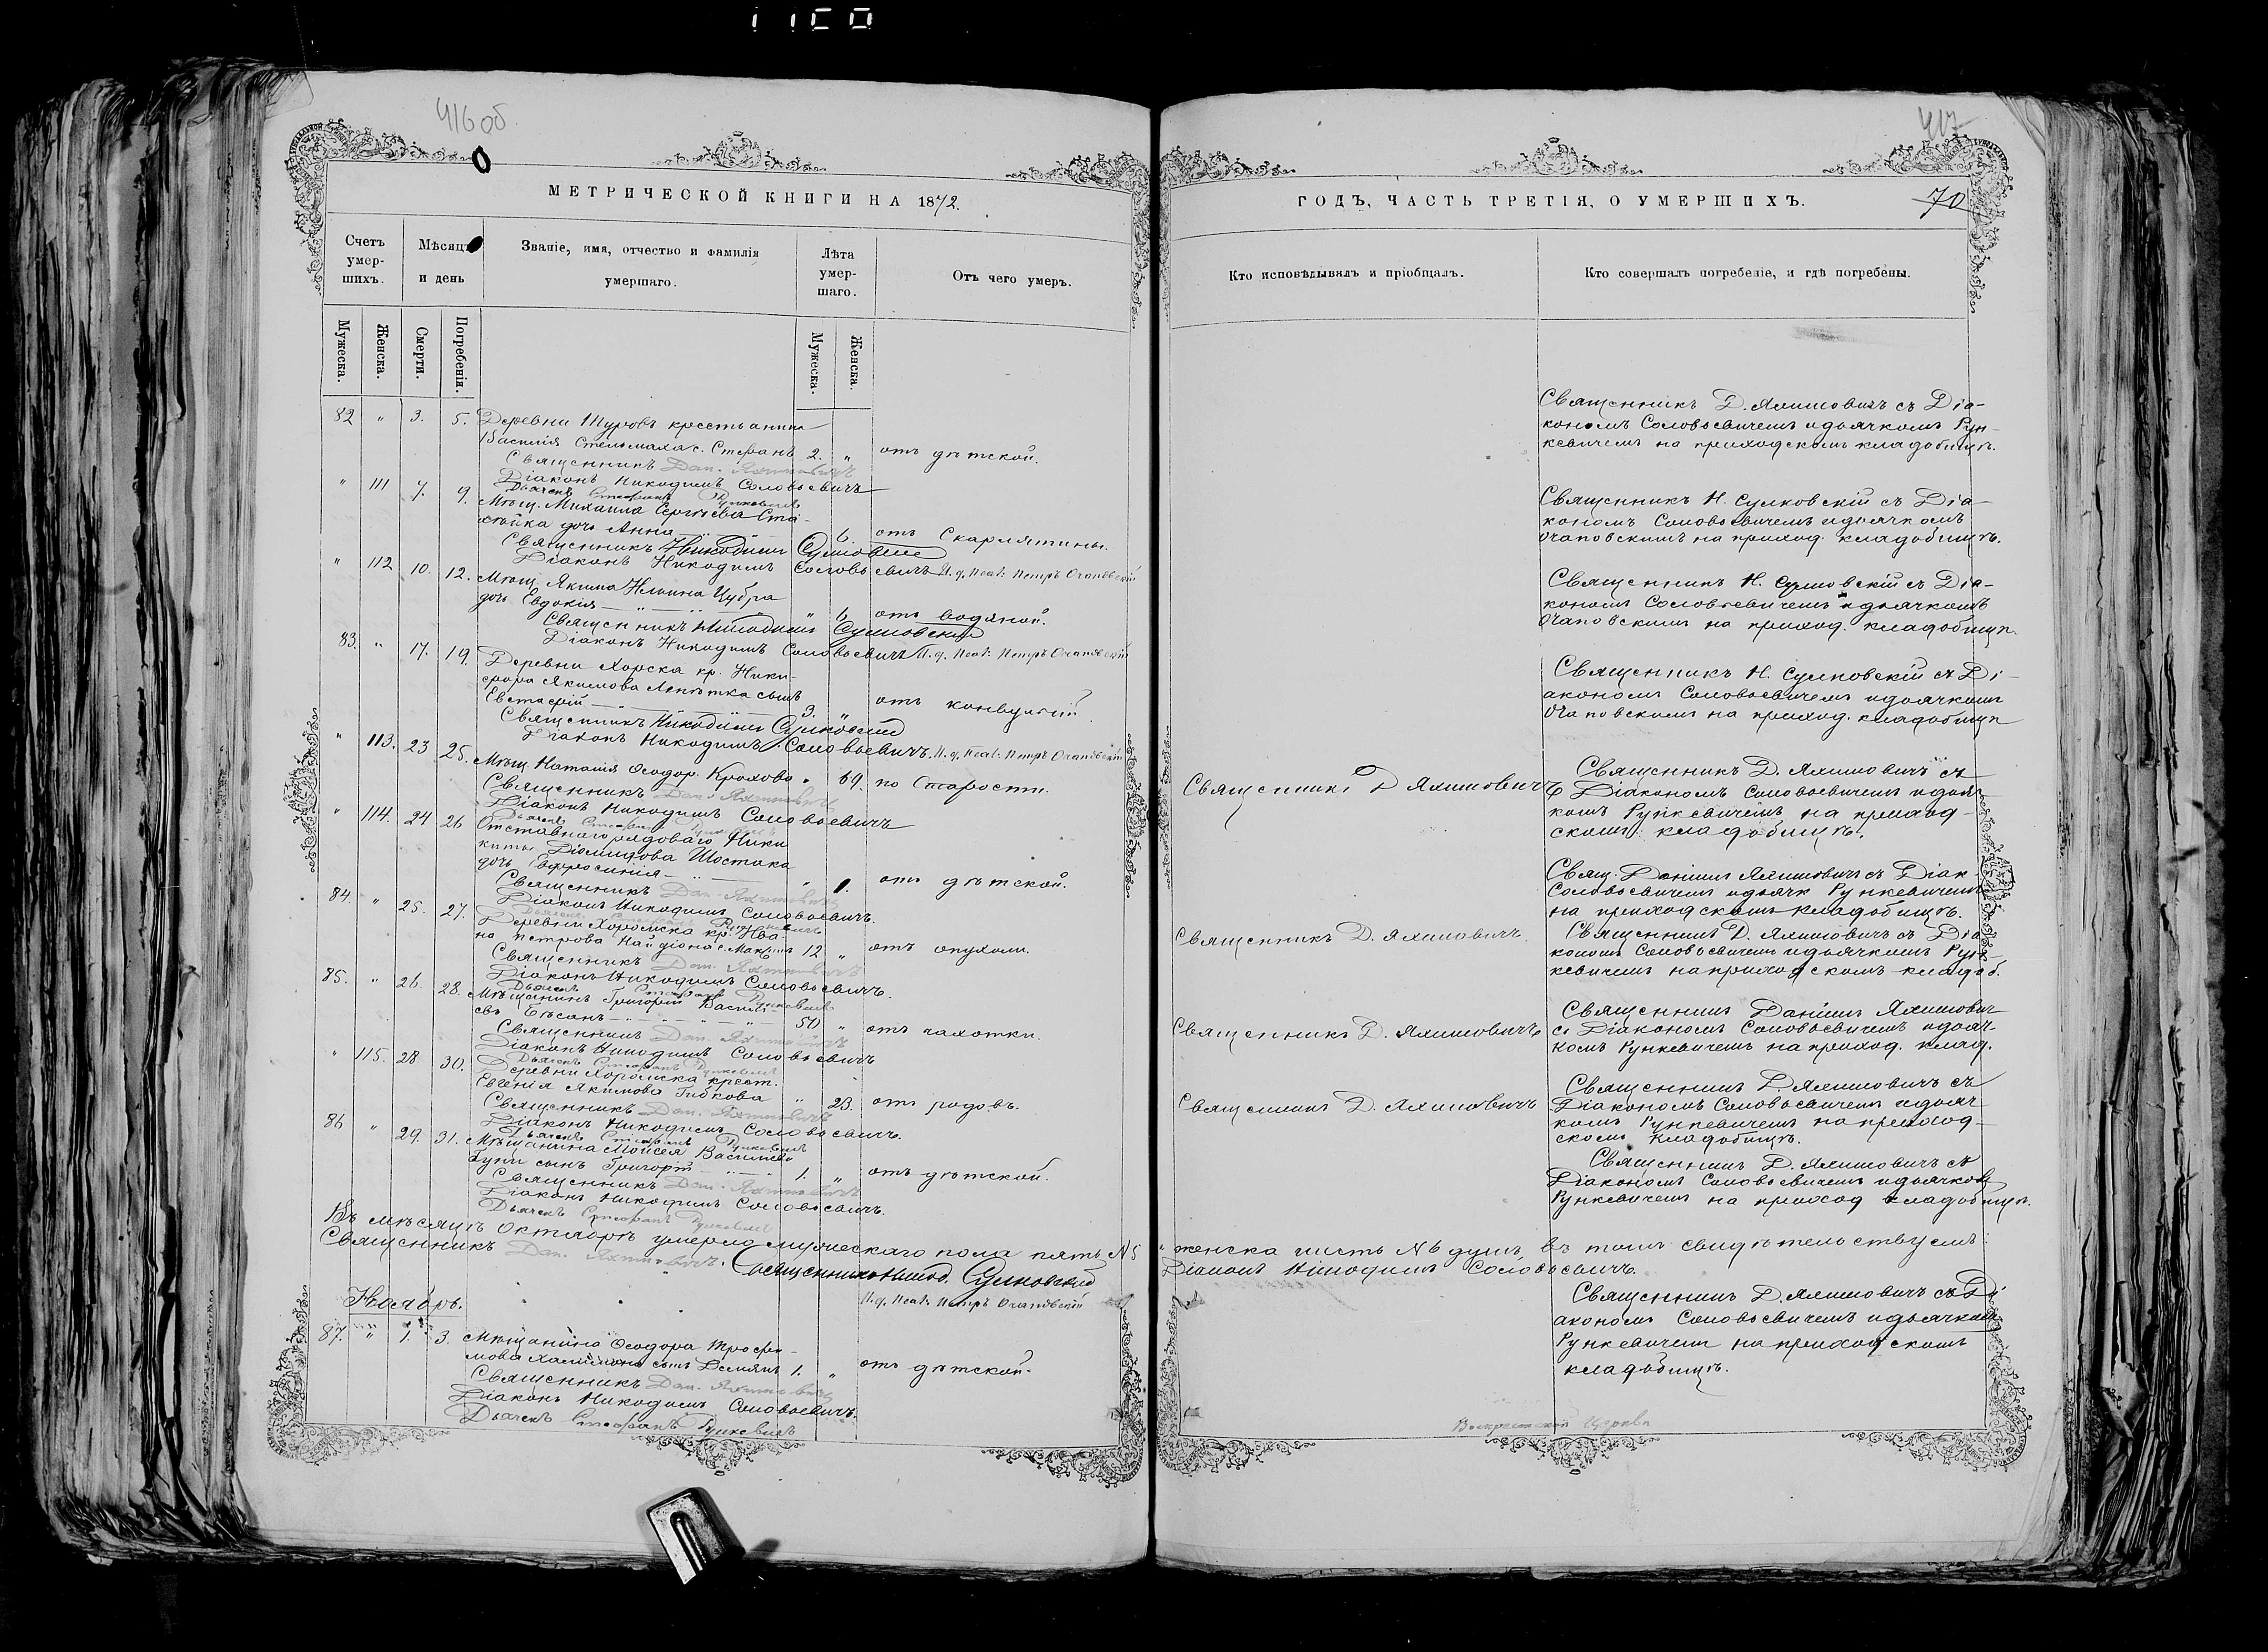 416 об
417
МЕТРИЧЕСКОЙ КНИГИ НА 1872.
ГОДЪ, ЧАСТЬ ТРЕТІЯ, О УМЕРШИХЪ.
70
Счетъ умер-шихъ.
Мѣсяцъ и день
Званіе, имя, отчество и фамилія умершаго.
Лѣта умер-шаго.
Отъ чего умеръ.
Кто исповѣдывалъ и пріобщалъ.
Кто совершалъ погребеніе, и гдѣ погребены.
Мужеска.
Женска.
Смерти.
Погребенія.
Мужеска.
Женска.
82 " 3. 5. Деревни Туровъ крестьянина
Василія Стельмаха с. Стефанъ 2. " отъ дѣтской.
Священникъ Дан. Яхимовичъ
Діаконъ Никодимъ Соловьевичъ
Дьячекъ Стефанъ Рункевичъ
Священникъ Д. Яхимовичъ съ Діа-
кономъ Соловьевичемъ и дьячкомъ Рун-
кевичемъ на приходскомъ кладбищѣ.
" 111 7. 9. Мѣщ. Михаила Сергѣева
дочь Анна 6. отъ Скарлятины.
Священникъ Никодимъ Сулковскій
Діаконъ Никодимъ Соловьевичъ И. д. Псал: Петръ Очаповскій
Священникъ Н. Сулковскій съ Діа-
кономъ Соловьевичемъ и дьячкомъ
Очаповскимъ на приход. кладбищѣ.
" 112 10. 12. Мѣщ. Якима Ильина Цубра
дочь Евдокія " 6 отъ водяной.
Священникъ Никодимъ Сулковскій
Діаконъ Никодимъ Соловьевичъ И. д. Псал: Петръ Очаповскій
Священникъ Н. Сулковскій съ Діа-
кономъ Соловьевичемъ и дьячкомъ
Очаповскимъ на приход. кладбищѣ
83. " 17. 19. Деревни Хорска кр. Ники-
фора Якимова сынъ
Евстафій 3. " отъ конвульсій.
Священникъ Никодимъ Сулковскій
Діаконъ Никодимъ Соловьевичъ. И. д. Псал: Петръ Очаповскій
Священникъ Н. Сулковскій съ Ді-
акономъ Соловьевичемъ и дьячкомъ
Очаповскимъ на приход. кладбищѣ
" 113. 23 25. Мѣщ. Наталія Ѳеодор. Крохова " 69. по Старости.
Священникъ Дан. Яхимовичъ
Діаконъ Никодимъ Соловьевичъ
Дьячекъ Стефанъ Рункевичъ
Священникъ Д. Яхимовичъ
Священникъ Д. Яхимовичъ съ
Діакономъ Соловьевичемъ и дьяч-
комъ Рункевичемъ на приход-
скомъ кладбищѣ.
" 114. 24 26 Отставнаго рядоваго Ники
киты Діомидова Шостака
дочь Ефросинія " 1. отъ дѣтской.
Священникъ Дан. Яхимовичъ
Діаконъ Никодимъ Соловьевичъ.
Дьячекъ Стефанъ Рункевичъ
Свящ. Даніилъ Яхимовичъ съ Діак-
Соловьевичемъ и дьячк Рункевичемъ
на приходскомъ кладбищѣ.
84. " 25. 27. Деревни Хоромска кр. Ива-
на Петрова с. Максимъ 12 " отъ опухоли.
Священникъ Дан. Яхимовичъ
Діаконъ Никодимъ Соловьевичъ.
Дьячекъ Стефанъ Рункевичъ
Священникъ Д. Яхимовичъ.
Священникъ Д. Яхимовичъ съ Діа
кономъ Соловьевичемъ и дьячкомъ Рун-
кевичемъ на приходскомъ кладб.
85. " 26. 28. Мѣщанинъ Григорій Василь-
евъ 50 " отъ чахотки.
Священникъ Дан. Яхимовичъ
Діаконъ Никодимъ Соловьевичъ
Дьячекъ Стефанъ Рункевичъ
Священникъ Д. Яхимовичъ
Священникъ Даніилъ Яхимович
съ Діакономъ Соловьевичемъ и дьяч-
комъ Рункевичемъ на приход. клад.
" 115. 28 30. Деревни Хоромска крест.
Евгенія Якимова Гибкова " 23. отъ родовъ.
Священникъ Дан. Яхимовичъ
Діаконъ Никодимъ Соловьевичъ.
Дьячекъ Стефанъ Рункевичъ
Священникъ Д. Яхимовичъ
Священникъ Д. Яхимовичъ съ
Діакономъ Соловьевичемъ и дьяч-
комъ Рункевичемъ на приход-
скомъ кладбищѣ.
86 " 29. 31. Мѣщанина Моисея Васильева
сынъ Григорій 1. " отъ дѣтской.
Священникъ Дан. Яхимовичъ
Діаконъ Никодимъ Соловьевичъ.
Дьячекъ Стефанъ Рункевичъ
Священникъ Д. Яхимовичъ съ
Діакономъ Соловьевичемъ и дьячком
Рункевичемъ на приход кладбищѣ.
Въ мѣсяцѣ Октябрѣ умерло мужескаго пола пять №5 женска шесть №6 душъ, въ томъ свидѣтельствуемъ:
Священникъ Дан. Яхимовичъ. Священникъ Никод. Сулковскій Діаконъ Никодимъ Соловьевичъ.
И. д. Псал: Петръ Очаповскій
Ноябрь.
87. " 1. 3. Мѣщанина Ѳеодора Трофи-
мова сынъ Демянъ 1. " отъ дѣтской.
Священникъ Дан. Яхимовичъ
Діаконъ Никодимъ Соловьевичъ.
Дьячекъ Стефанъ Рункевичъ
Священникъ Д. Яхимовичъ съ Ді
акономъ Соловьевичемъ и дьячкомъ
Рункевичемъ на приходскомъ
кладбищѣ.
Воскресенской Церкви